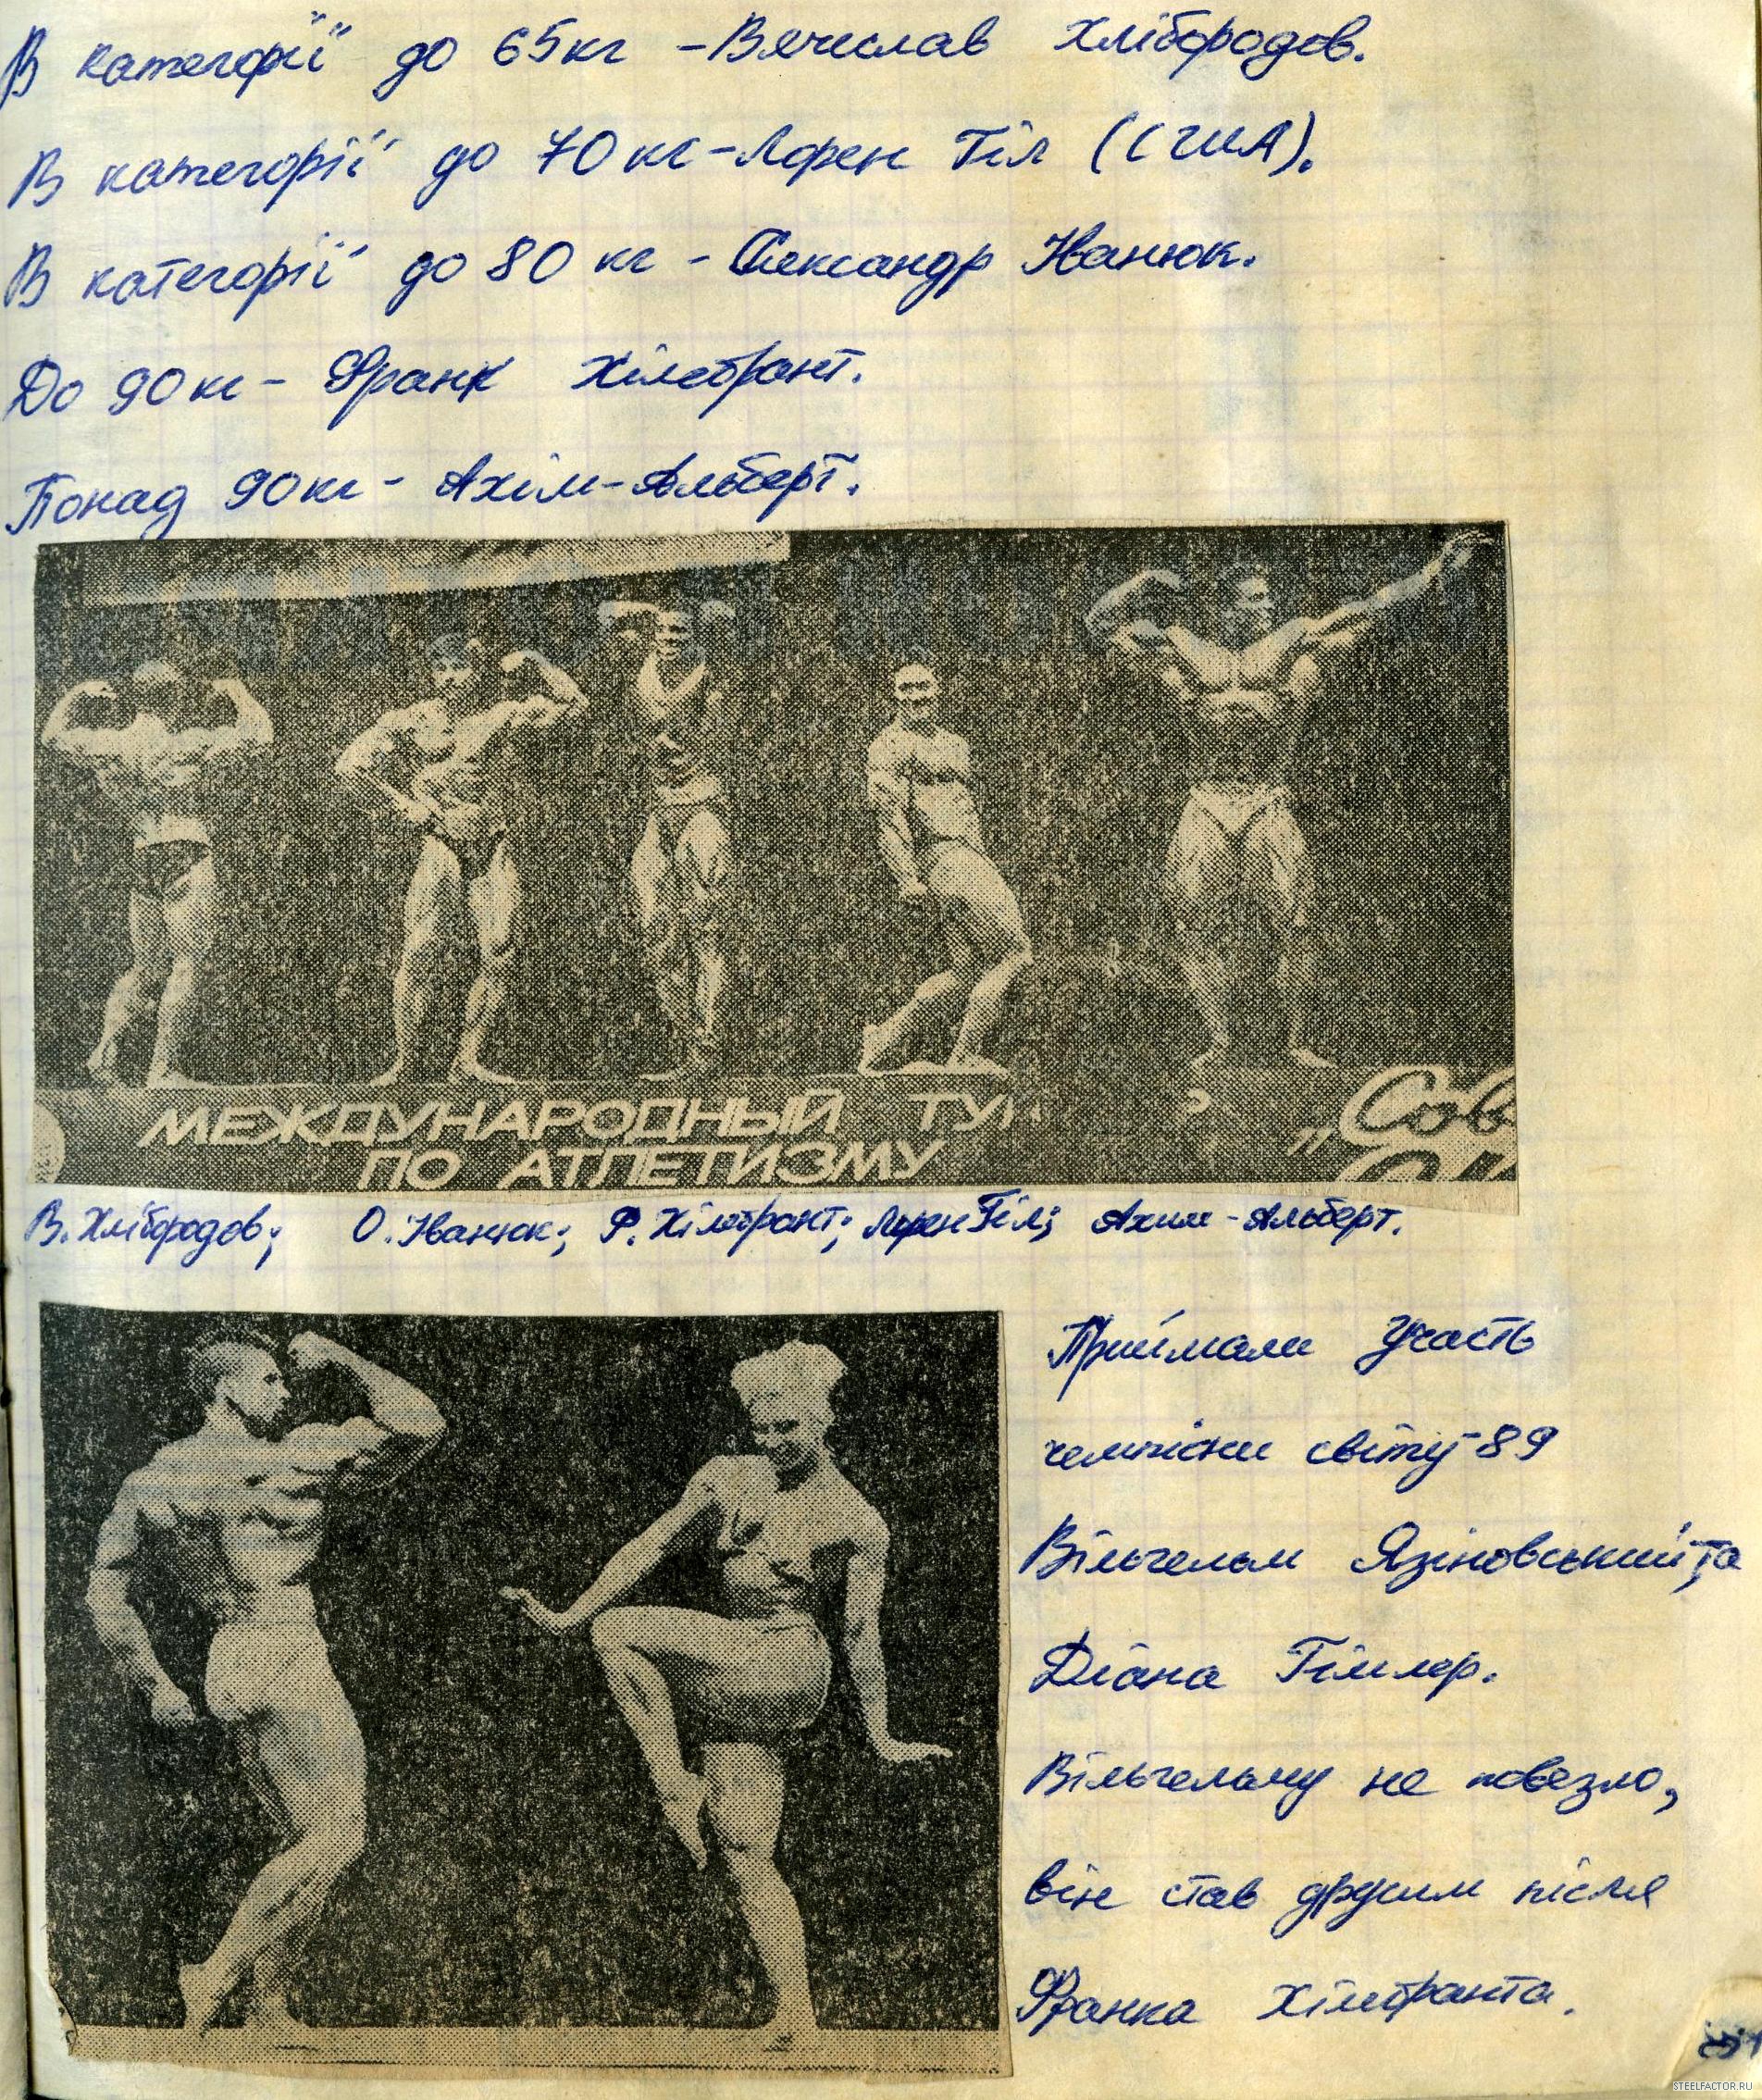 В категорії до 65кг – Вячеслав Хлібородов.
В категорії до 70кг – Лорен Гіл (США).
В категорії до 80 кг – Олександр Іванюк.
До 90кг – Франк Хілебрант.
Понад 90кг – Ахім-Альберт.
МЕЖДУНАРОДНЫЙ ТУ
ПО АТЛЕТИЗМУ
„Сов
В. Хлібородов; О. Іванюк; Ф. Хілебрант; Лорен Гіл; Ахим-Альберт.
Приймали участь
чемпіони світу-89
Вільгельм Язіновський та
Діана Гімлер.
Вільгельму не повезло,
він став другим після
Франка Хілебранта.
STEELFACTOR.RU